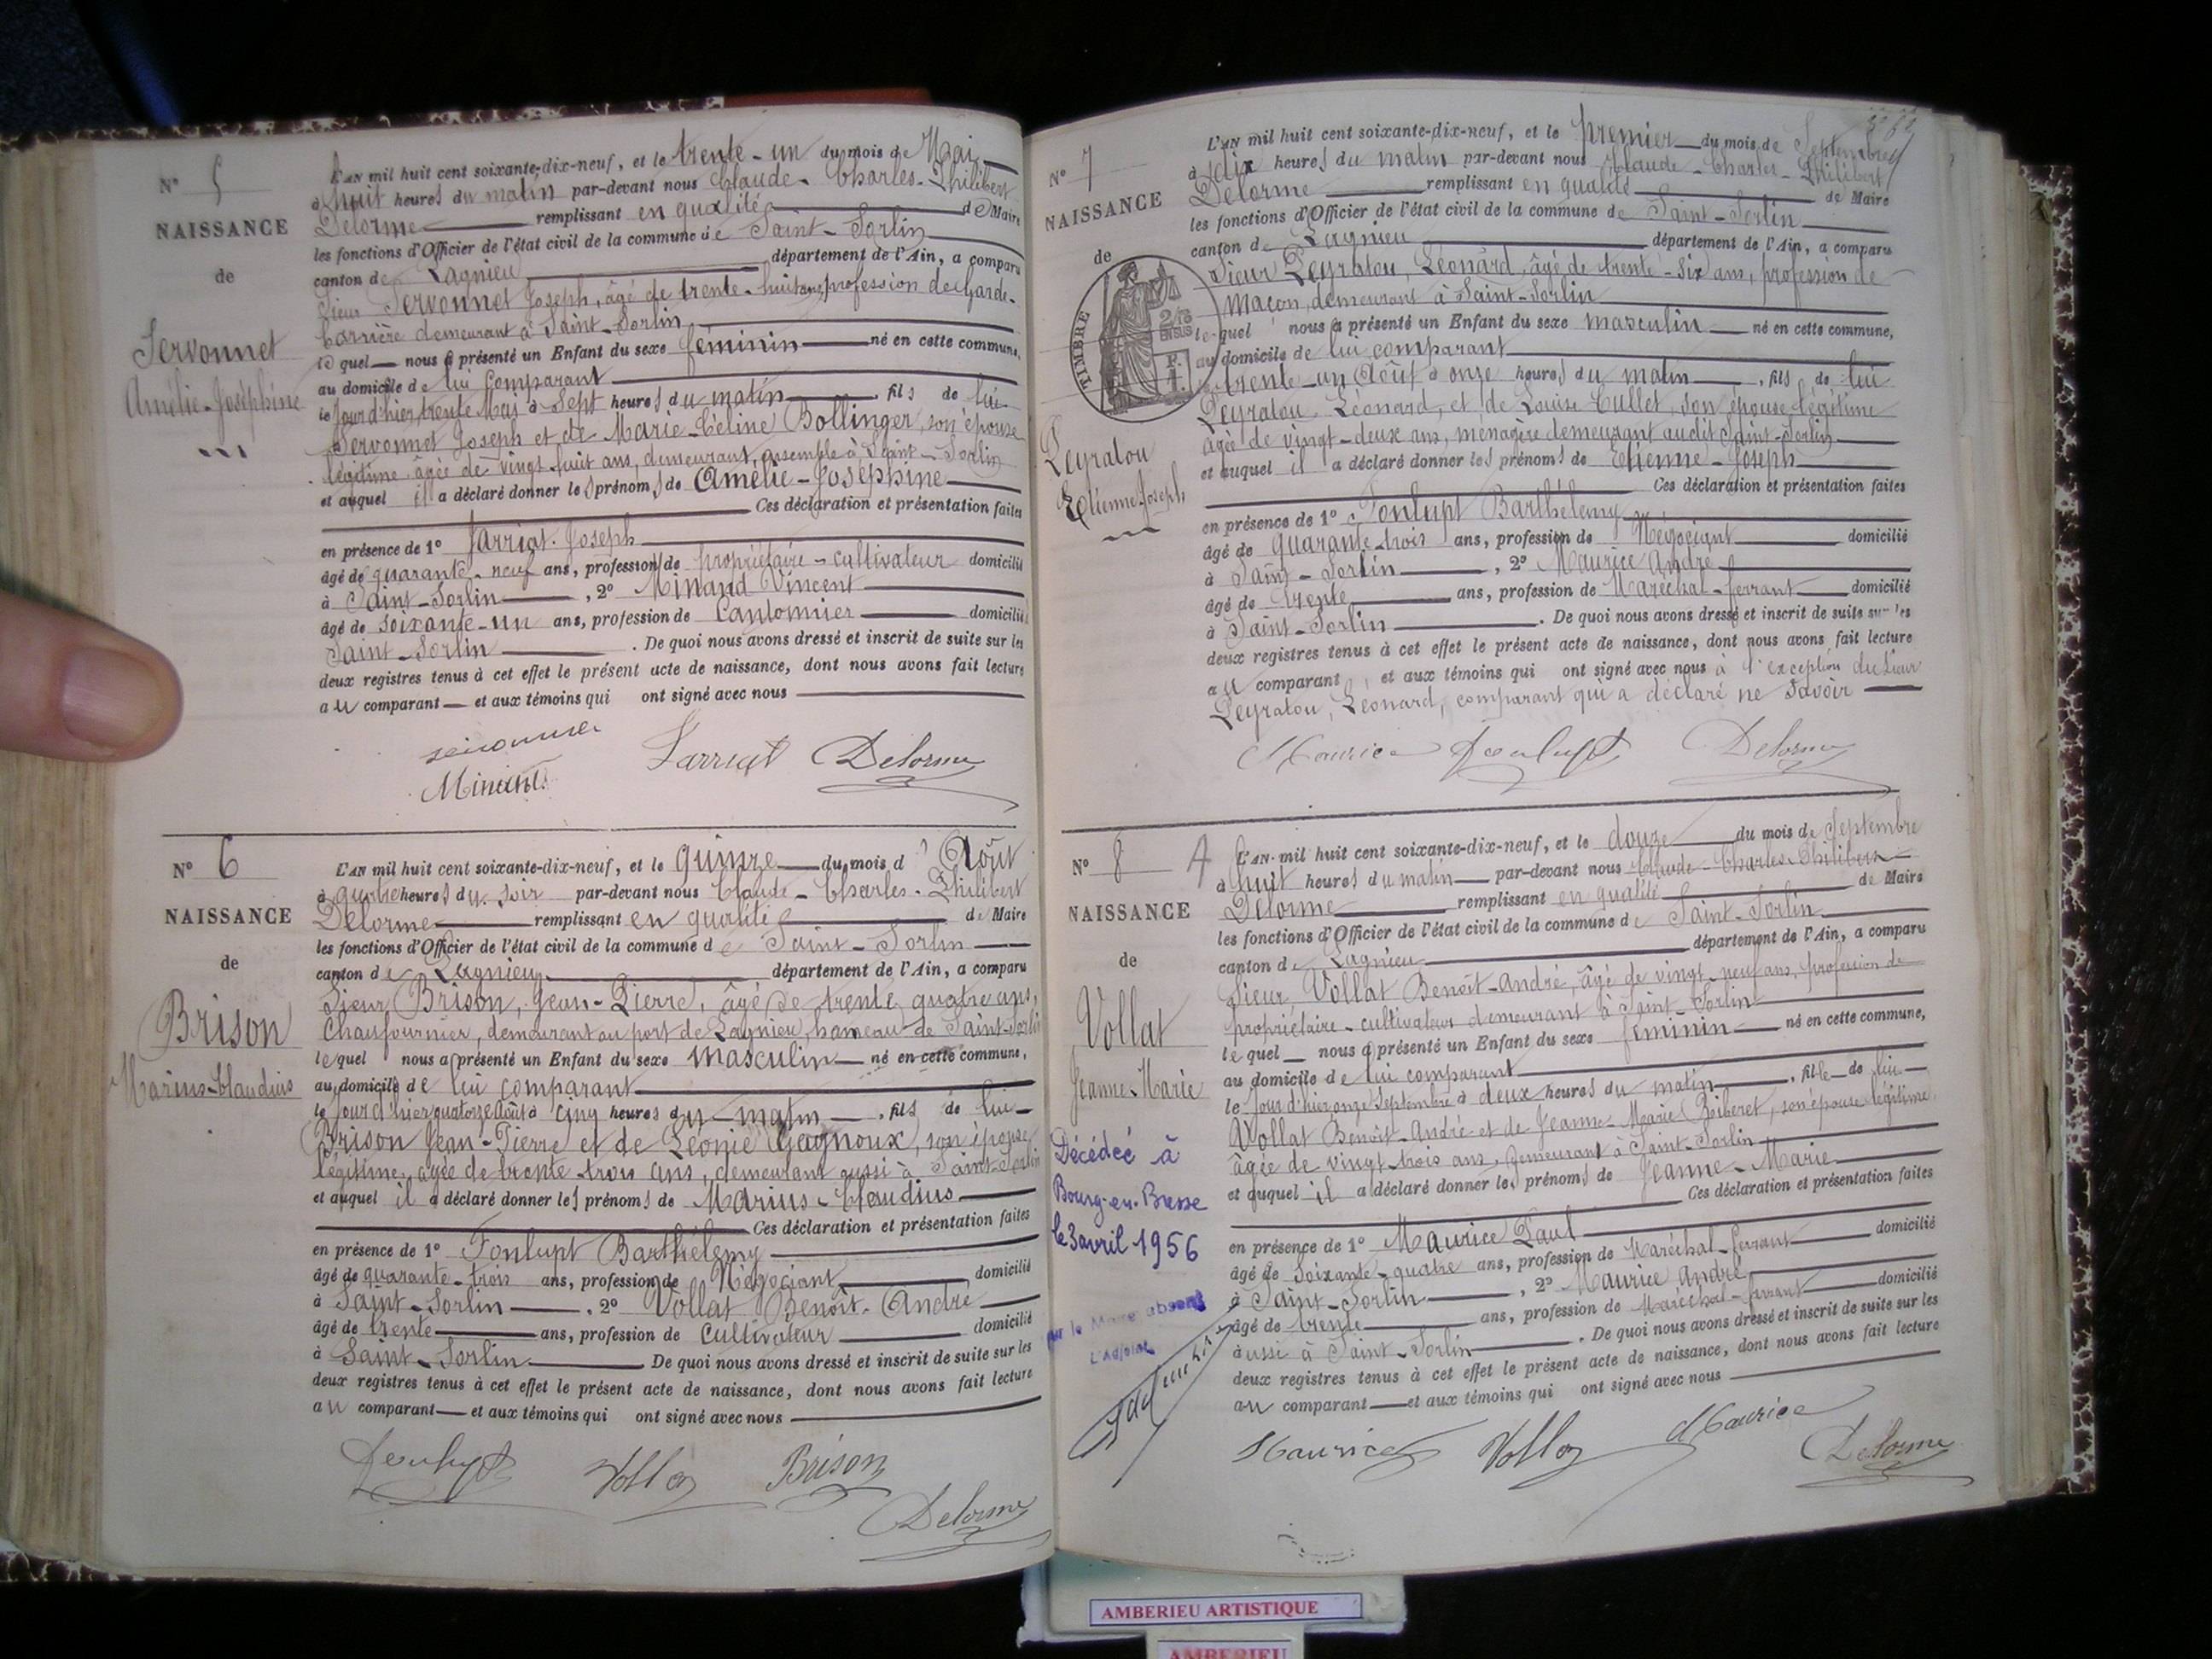 N° 5
NAISSANCE
de
Servonnet
Amélie-Joséphine
L'AN mil huit cent soixante-dix-neuf, et le trente-un du mois de Mai
à huit heures du matin par-devant nous Claude-Charles-Philibert
Delorme remplissant en qualité de Maire
les fonctions d'Officier de l'état civil de la commune de Saint-Sorlin
canton de Lagnieu département de l'Ain, a comparu
Sieur Servonnet Joseph, âgé de trente-huit ans, profession de Garde-
barrière demeurant à Saint-Sorlin
lequel nous a présenté un Enfant du sexe féminin né en cette commune,
au domicile de lui comparant
le jour d'hier, trente Mai à sept heures du matin, fils de lui
Servonnet Joseph et de Marie-Céline Bollinger, son épouse
légitime âgée de vingt-huit ans, demeurant ensemble à Saint-Sorlin
et auquel il a déclaré donner les prénoms de Amélie-Joséphine
Ces déclaration et présentation faites
en présence de 1° Jarriat Joseph
âgé de quarante-neuf ans, profession de propriétaire-cultivateur domicilié
à Saint-Sorlin, 2° Minand Vincent
âgé de soixante-un ans, profession de Cantonnier domicilié
Saint-Sorlin. De quoi nous avons dressé et inscrit de suite sur les
deux registres tenus à cet effet le présent acte de naissance, dont nous avons fait lecture
au comparant et aux témoins qui ont signé avec nous
Jarriat Delorme
Minand
N° 6
NAISSANCE
de
Brison
Marius-Claudius
L'AN mil huit cent soixante-dix-neuf, et le quinze du mois d'Août
à quatre heures du soir par-devant nous Claude-Charles-Philibert
Delorme remplissant en qualité de Maire
les fonctions d'Officier de l'état civil de la commune de Saint-Sorlin
canton de Lagnieu département de l'Ain, a comparu
Sieur Brison, Jean-Pierre, âgé de trente quatre ans,
Chaufournier, demeurant au port de Lagnieu, hameau de Saint-Sorlin
lequel nous a présenté un Enfant du sexe masculin né en cette commune,
au domicile de lui comparant
le jour d'hier quatorze Août à cinq heures du matin, fils de lui
Brison Jean-Pierre et de Léonie Gagnoux, son épouse
légitime, âgée de trente-trois ans, demeurant aussi à Saint-Sorlin
et auquel il a déclaré donner les prénoms de Marius-Claudius
Ces déclaration et présentation faites
en présence de 1° Fonlupt Barthélemy
âgé de quarante-trois ans, profession de Négociant domicilié
à Saint-Sorlin, 2° Vollat Benoît-André
âgé de trente ans, profession de Cultivateur domicilié
à Saint-Sorlin De quoi nous avons dressé et inscrit de suite sur les
deux registres tenus à cet effet le présent acte de naissance, dont nous avons fait lecture
au comparant et aux témoins qui ont signé avec nous
Fonlupt Vollat Brison
Delorme
N° 7
NAISSANCE
de
TIMBRE
Peyratou
Etienne Joseph
L'AN mil huit cent soixante-dix-neuf, et le premier du mois de Septembre
à dix heures du matin par-devant nous Claude-Charles-Philibert
Delorme remplissant en qualité de Maire
les fonctions d'Officier de l'état civil de la commune de Saint-Sorlin
canton de Lagnieu département de l'Ain, a comparu
Sieur Peyratou, Léonard, âgé de trente-six ans, profession de
Maçon, demeurant à Saint-Sorlin
lequel nous a présenté un Enfant du sexe masculin né en cette commune,
au domicile de lui comparant
trente-un Août à onze heures du matin, fils de lui
Peyratou Léonard, et de Louise Cullet, son épouse légitime
âgée de vingt-deux ans, ménagère demeurant audit Saint-Sorlin
et auquel il a déclaré donner les prénoms de Etienne-Joseph
Ces déclaration et présentation faites
en présence de 1° Fonlupt Barthélemy
âgé de quarante-trois ans, profession de Négociant domicilié
à Saint-Sorlin, 2° Maurice André
âgé de trente ans, profession de Maréchal-ferrant domicilié
à Saint-Sorlin. De quoi nous avons dressé et inscrit de suite sur les
deux registres tenus à cet effet le présent acte de naissance, dont nous avons fait lecture
au comparant, et aux témoins qui ont signé avec nous à l'exception du Sieur
Peyratou, Léonard, comparant qui a déclaré ne savoir
Maurice Fonlupt Delorme
N° 8
NAISSANCE
de
Vollat
Jeanne-Marie
Décédée à
Bourg-en-Bresse
le 3 avril 1956
Pour le Maire absent
L'Adjoint
L'AN mil huit cent soixante-dix-neuf, et le douze du mois de Septembre
à huit heures du matin par-devant nous Claude-Charles-Philibert
Delorme remplissant en qualité de Maire
les fonctions d'Officier de l'état civil de la commune de Saint-Sorlin
canton de Lagnieu département de l'Ain, a comparu
Sieur, Vollat Benoît-André, âgé de vingt-neuf ans, profession de
propriétaire-cultivateur demeurant à Saint-Sorlin
lequel nous a présenté un Enfant du sexe féminin né en cette commune,
au domicile de lui comparant
le jour d'hier onze Septembre à deux heures du matin, fille de lui
Vollat Benoît-André et de Jeanne-Marie Riberet, son épouse légitime,
âgée de vingt-trois ans, demeurant à Saint-Sorlin
et auquel il a déclaré donner les prénoms de Jeanne-Marie
Ces déclaration et présentation faites
en présence de 1° Maurice Paul domicilié
âgé de soixante-quatre ans, profession de Maréchal-ferrant
à Saint-Sorlin, 2° Maurice André domicilié
âgé de trente ans, profession de Maréchal-ferrant
aussi à Saint-Sorlin. De quoi nous avons dressé et inscrit de suite sur les
deux registres tenus à cet effet le présent acte de naissance, dont nous avons fait lecture
au comparant et aux témoins qui ont signé avec nous
Maurice Vollat Maurice
Delorme
AMBERIEU ARTISTIQUE
AMBERIEU